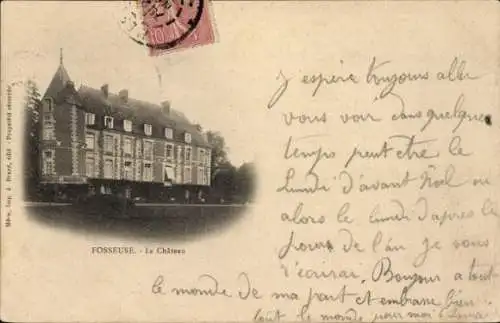 J espère toujours aller
vous voir dans quelque
temps peut etre le
Lundi d'avant Noël ou
alors le lundi d'après le
jours de l'an je vous
écrirai. Bonjour a tout
le monde de ma part et embrasse bien
tout le monde pour moi
FOSSEUSE. - Le Château
Propriété réservée